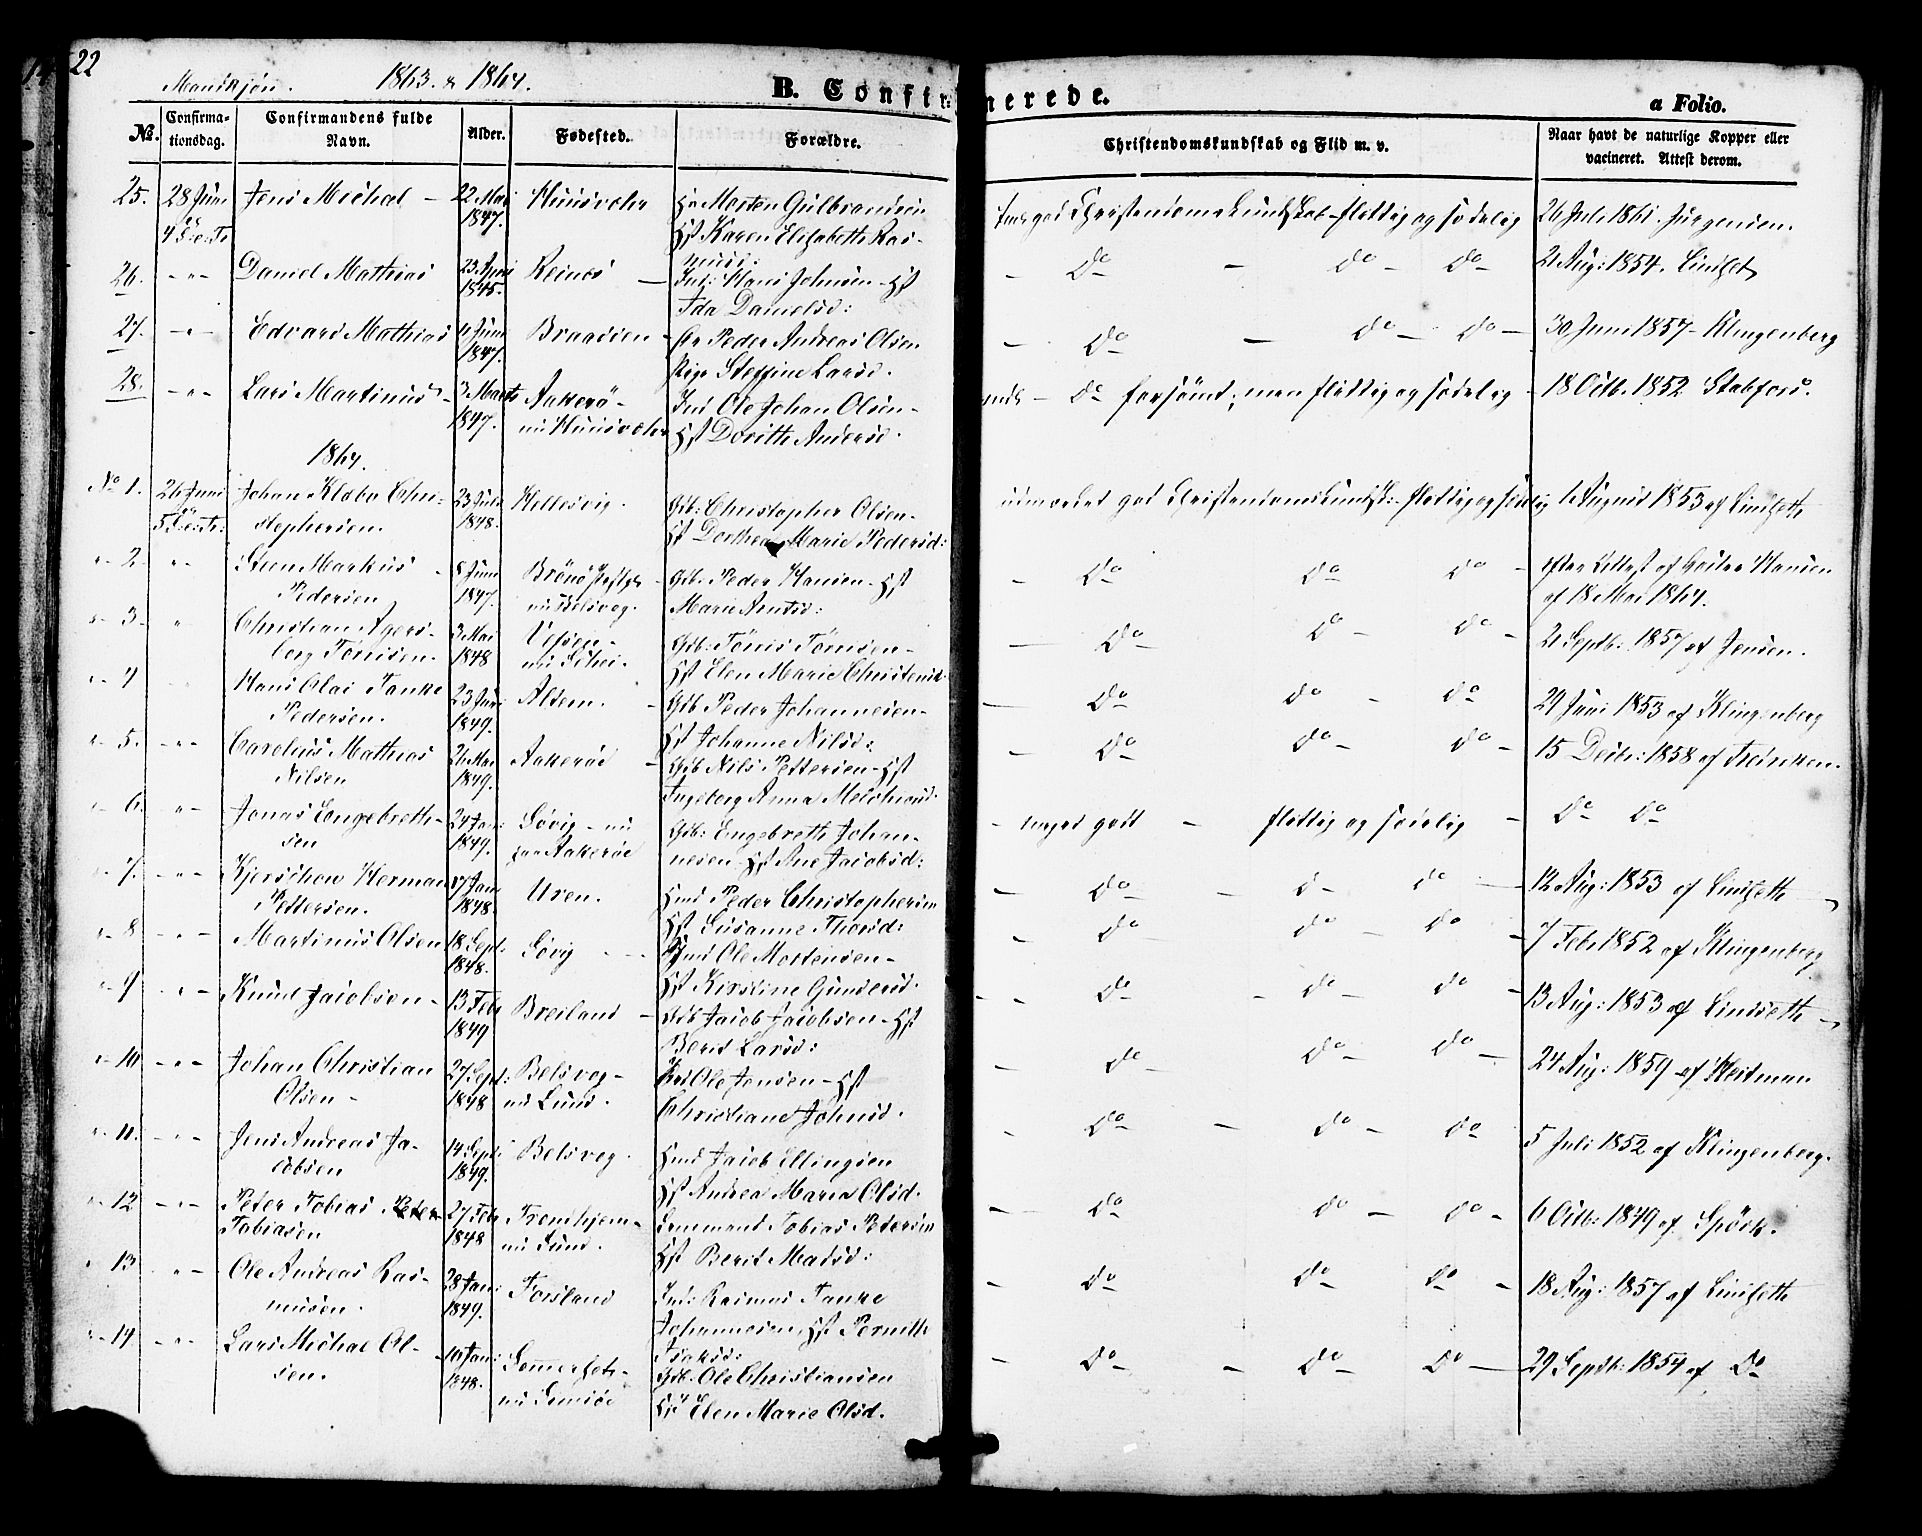 22
Mandkjøn. 1863. & 1864.
B. Confirmerede.
a Folio.
No. Confirmationsdag. Confirmandens fulde Navn. Alder. Fødested. Forældre. Christendomskundskab og Flid m. v. Naar havt de naturlige Kopper eller vacineret. Attest derom.
25. 28 Juni Jens Michal – 22 Mai 1847. Huusvær Morten Gulbrandsen
Hst Karen Elisabeth Ras-
god Christendomskundskab – flittig og sædelig 26 Juli 1861. Jürgensen.
26. –"– Daniel Mathias 23 April 1845. Reinøs – Ind: Hans Johnsen – Hst
Ida Danielsd:
– Do – do – do – 2 Aug: 1854. Lindset
27. –"– Edvard Mathias Juni 1847. Braasøen – Peder Andreas Olsen
Pige Steffine Larsd.
– Do – do – do – 30 Juni 1857 – Klingenberg
28. –"– Lars Martinus – 3 Marts 1847. Aakerø –
nu Huusvær
Ind Ole Johan Olsen –
Hst Dorith Andersd.
– do forsømt, men flittig og sædelig – 18 Octb. 1852 Stabfors.
1864.
No 1. 26 Juni Johan Klæbo Chri-
stophersen. 23 Juli 1848. Hellesvig.
Gdb: Christopher Olsen –
Hst Dorthea Marie Pedersd:
udmærket god Christendomskundsk: flittig og sædelig August 1853 af Lindseth
" 2. " " Steen Markus –
Pedersen 8 Juni 1847. Brønø Prstgld –
nu Belsvog.
Gdb. Peder Hansen – Hst
Marie Arntsd:
– Do do do – efter Attest af Hansen
af 18 Mai 1864.
" 3. " Christian Agers-
borg Tønisen. 3 Mai 1848 Vefsen –
Gdb: Tønis Tønisen –
Hst Elen Marie Christensd.
– Do – do – do – 2 Septb: 1857 af Jensen.
" 4 Hans Olai Tanke
Pedersen. 23 Juni 1849. Altern. –
Gdb Peder Johannesen –
Hst Johanne Nilsd:
– Do do – do 24 Juni 1853 af Klingenberg
" 5. –"– Carelius Mathias
Nilsen 26 Mai 1849. Aakerøe –
Gdb Nils Pettersen – Hst
Ingeborg Anna
– Do do – do – 15 Decbr: 1858 af
" 6. " – Jonas Engebreth-
sen 24 Jan: 1849. Søvig – nu
paa Aakerøe
Gdb: Engebreth Johan-
nesen – Hst Ane Jacobsd:
– meget godt – flittig og sædelig – Do do
" 7. –"– Kjerschow Herman
Pettersen. 17 Jan: 1848. Uren.
Hmd Peder Christophersen
Hst Susanne Thorsd:
– Do – d – do – 12 Aug: 1853 af Lindseth
" 8 –"– Martinus Olsen 18 Sept: 1848. Søvig – – –
Hmd Ole Mortensen –
Hst Kirstine Gundersd.
– do do – do – 7 Feb 1852 af Klingenberg
" 9 –"– Knud Jacobsen – 13 Feb 1849 Breiland –
Gdb Jacob Jacobsen – Hst
Berit Larsd:
– – do – do – do – 13 Aug: 1853 af Lindseth –
" 10 –"– Johan Christian
Olsen – 27 Sept: 1848 Belsvog –
nu Lund.
Ole Jensen – Hst
Christiane Johnsd.
– do – do – do – 24 Aug: 1859 af Heitman
" 11. –"– Jens Andreas Ja-
cobsen 14 Sept: 1849. Belsvog.
Hmd Jacob Ellingsen
Hst Andrea Maria Olsd.
– do – do – do 5 Juli 1852 af Klingenberg.
" 12 –"– Peter Tobias
Tobiasen 27 Feb 1848 Tromhjem –
nu Sund.
Tobias Pedersen
Hst Berit Madsd:
– do do – do – 6 Octb: 1849 af Spörk.
" 13 " – Ole Andreas Ras-
musen. 28 Jan: 1849. Forsland
Ind: Rasmus Tanke
Johannesen Hst Pernille
Isaksd:
– do do – do – 18 Aug: 1857 af Lindseth
" 14 –"– Lars Michal Ol-
sen. 10 Jan: 1848.
Gdb. Ole Christiansen
Hst Elen Marie Olsd.
– Do – – do – do – 29 Septb: 1854 af Do